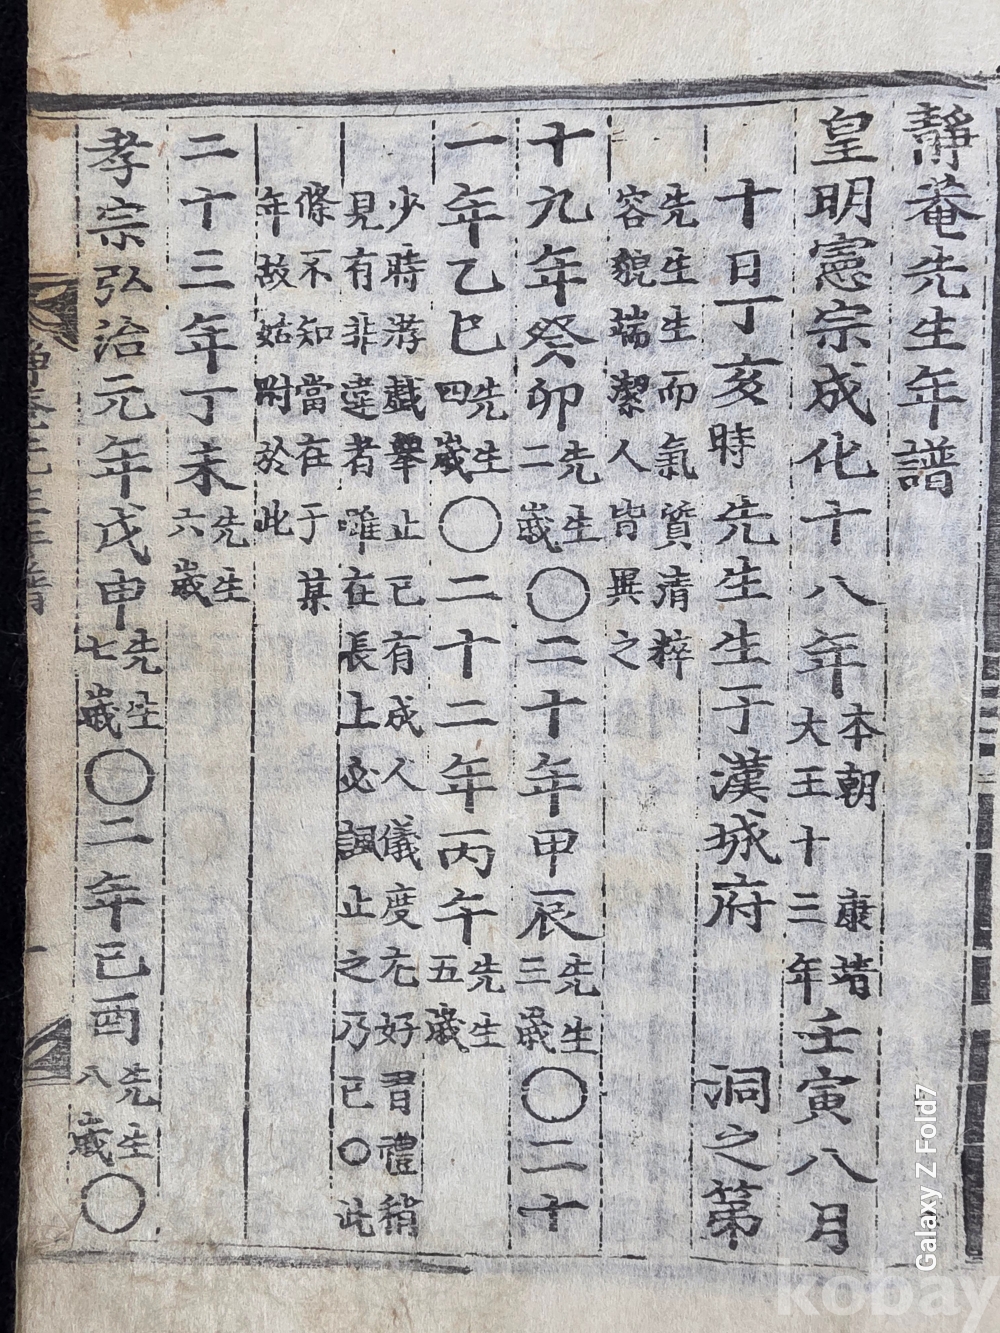 靜菴先生年譜
皇明憲宗成化十八年本朝康靖大王十三年壬寅八月
十日丁亥時先生生于漢城府 洞之第
先生生而氣質清粹
容貌端潔人皆異之
十九年癸卯先生二歲〇二十年甲辰先生三歲〇二十
一年乙巳先生四歲〇二十二年丙午先生五歲
少時游戲擧止已有成人儀度尤好習禮稍
見有非違者雖在長上必諷止之乃已〇此
條不知當在于某
年故姑附於此
二十三年丁未先生六歲
孝宗弘治元年戊申先生七歲〇二年已酉先生八歲〇
Galaxy Z Fold7
kobay